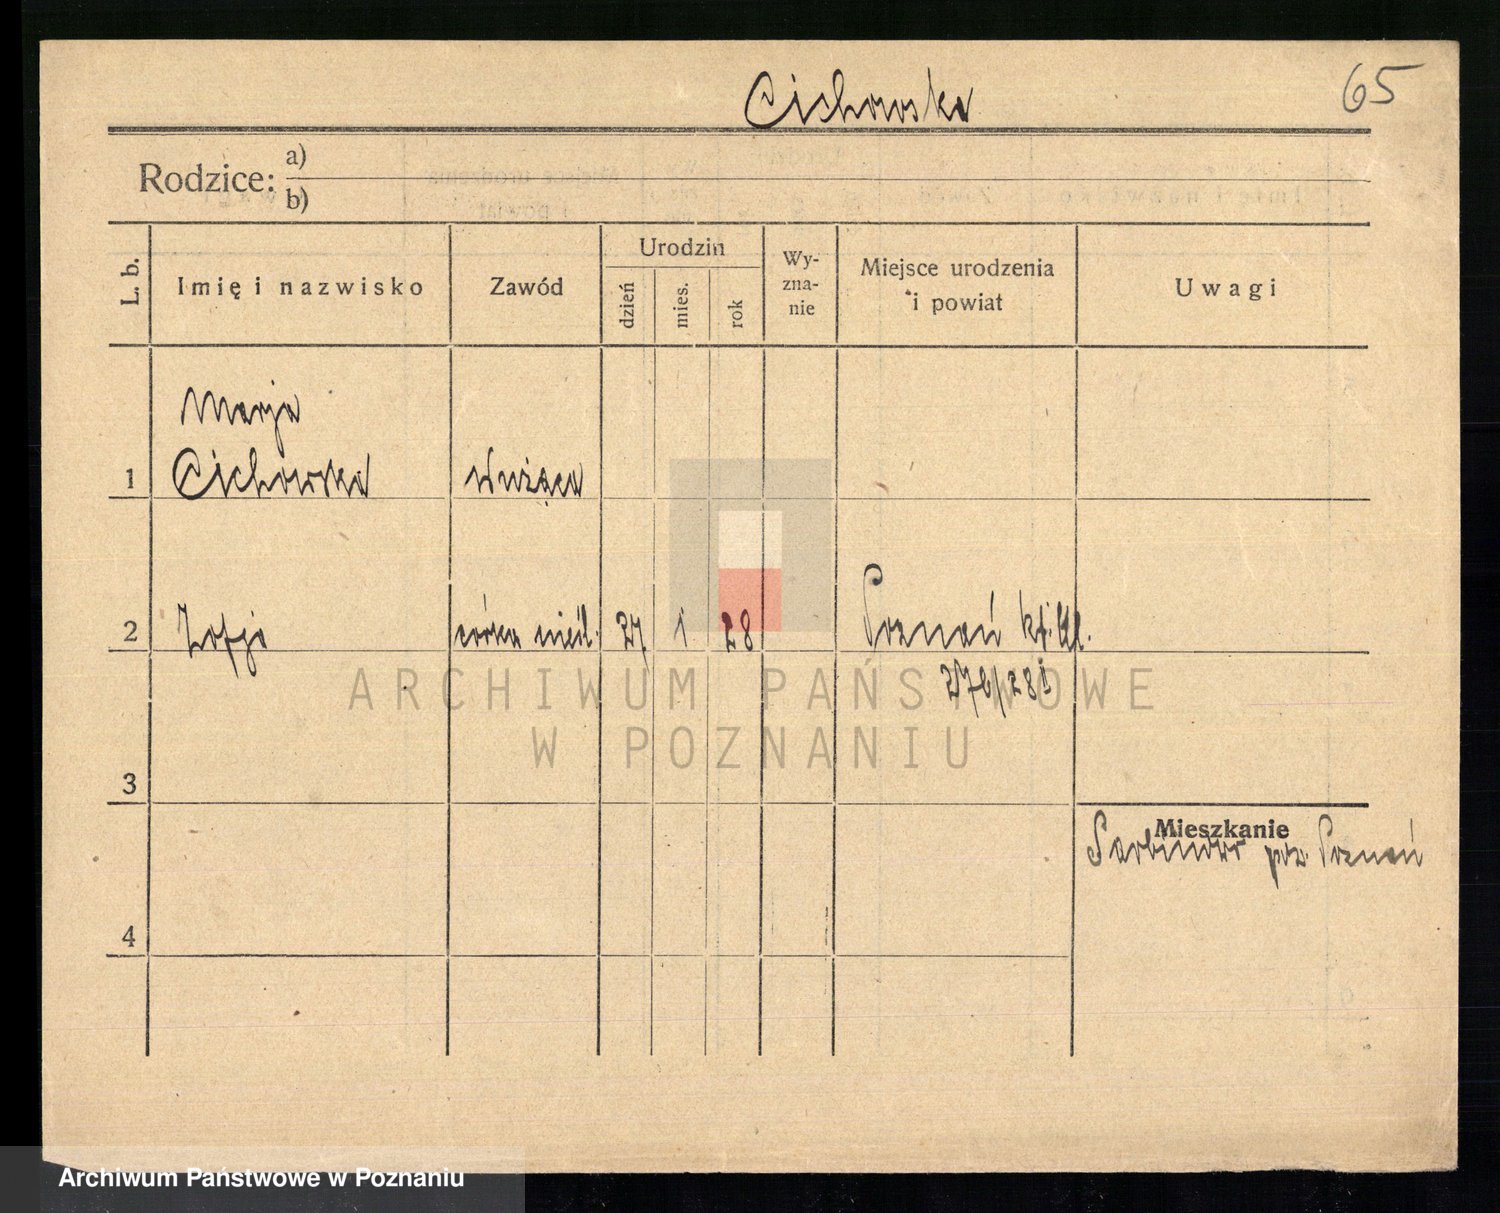 Cichowska
65
Rodzice: a)
b)
L. b.
Imię i nazwisko
Zawód
Urodzin
dzień
mies.
rok
Wy-
zna-
nie
Miejsce urodzenia
i powiat
Uwagi
Marja
1 Cichowska służąca
2 Zofja córka nieśl. 27 1 28 Poznań
ARCHIWUM PAŃSTWOWE
W POZNANIU
3
Mieszkanie
Sarbinowo pow. Poznań
4
Archiwum Państwowe w Poznaniu